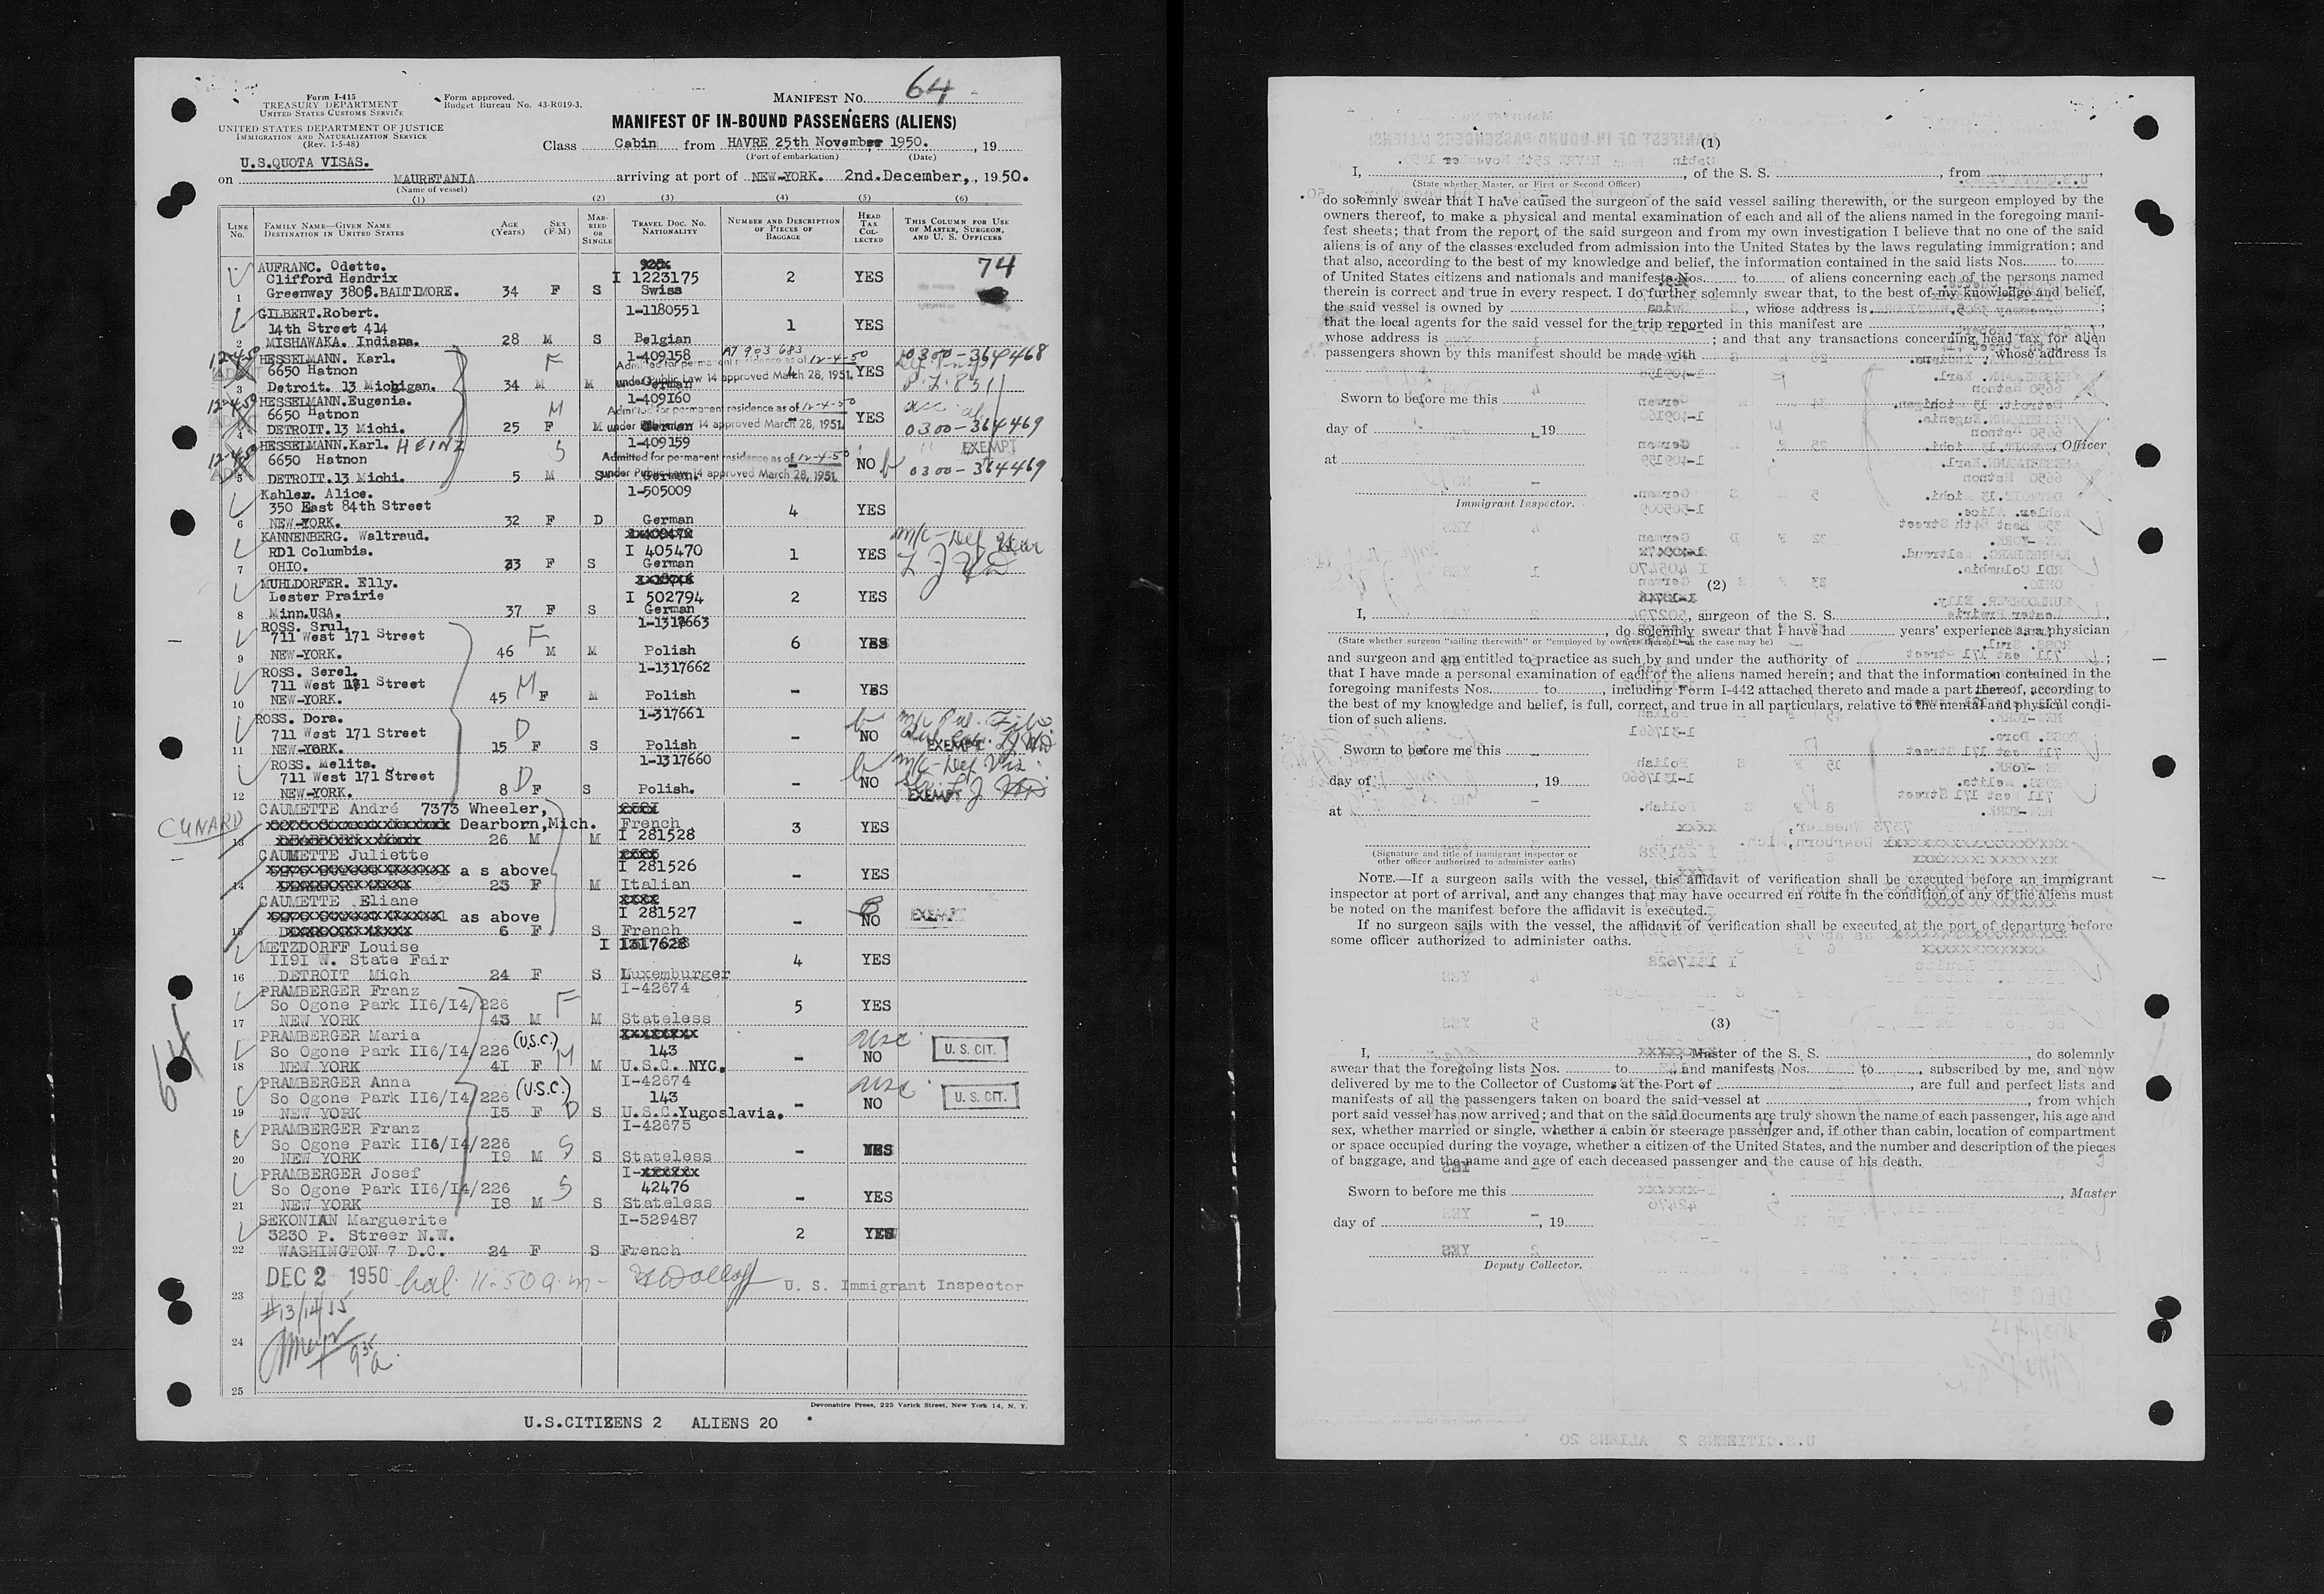 Form I-415
TREASURY DEPARTMENT
UNITED STATES CUSTOMS SERVICE
Form approved.
Budget Bureau No. 43-R019-3.
MANIFEST NO. 64
UNITED STATES DEPARTMENT OF JUSTICE
IMMIGRATION AND NATURALIZATION SERVICE
(Rev. 1-5-48)
MANIFEST OF IN-BOUND PASSENGERS (ALIENS)
Class Cabin from HAVRE 25th November 1950. , 19
(Port of embarkation) (Date)
U.S.QUOTA VISAS.
on MAURETANIA arriving at port of NEW-YORK. 2nd.December, , 1950.
(Name of vessel)
(1) (2) (3) (4) (5) (6)
LINE No. FAMILY NAME—GIVEN NAME DESTINATION IN UNITED STATES AGE (Years) SEX (F-M) MARRIED OR SINGLE TRAVEL DOC. NO. NATIONALITY NUMBER AND DESCRIPTION OF PIECES OF BAGGAGE HEAD TAX COLLECTED THIS COLUMN FOR USE OF MASTER, SURGEON, AND U. S. OFFICERS
AUFRANC. Odette. 74
Clifford Hendrix I 1223175 2 YES
1 Greenway 3805.BALTIMORE. 34 F S Swiss
GILBERT.Robert. 1-1180551
14th Street 414 1 YES
2 MISHAWAKA. Indiana. 28 M S Belgian
12-4-50 HESSELMANN. Karl. F 1-409158 A7 903 683 0300-364468
6650 Hatnon Admitted for permanent residence as of 12-4-50 4 YES
3 Detroit. 13 Michigan. 34 M M German under Public Law 14 approved March 28, 1951.
12-4-50 HESSELMANN.Eugenia. M 1-409160
6650 Hatnon Admitted for permanent residence as of 12-4-50 YES
4 DETROIT.13 Michi. 25 F M German under Public Law 14 approved March 28, 1951. 0300-364469
HESSELMANN.Karl. HEINZ S 1-409159 EXEMPT
12-4-50 6650 Hatnon Admitted for permanent residence as of 12-4-50 - NO 0300-364469
5 DETROIT.13 Michi. 5 M S German. under Public Law 14 approved March 28, 1951.
Kahler. Alice. 1-505009
350 East 84th Street 4 YES
6 NEW-YORK. 32 F D German
KANNENBERG. Waltraud.
RD1 Columbia. I 405470 1 YES
7 OHIO. 23 F S German
MUHLDORFER. Elly.
Lester Prairie I 502794 2 YES
8 Minn.USA. 37 F S German
ROSS. Srul. 1-1317663
711 West 171 Street F 6 YES
9 NEW-YORK. 46 M M Polish
ROSS. Serel. 1-1317662
711 West 171 Street M - YES
10 NEW-YORK. 45 F M Polish
ROSS. Dora. 1-317661
711 West 171 Street D - NO
11 NEW-YORK. 15 F S Polish EXEMPT
ROSS. Melita. 1-1317660
711 West 171 Street D - NO
12 NEW-YORK. 8 F S Polish. EXEMPT
CAUMETTE André 7373 Wheeler,
CUNARD Dearborn,Mich. French 3 YES
13 26 M M I 281528
CAUMETTE Juliette
a s above I 281526 - YES
14 23 F M Italian
CAUMETTE Eliane
as above I 281527 - NO EXEMPT
15 6 F S French
METZDORFF Louise I 1317628
1191 W. State Fair 4 YES
16 DETROIT Mich 24 F S Luxemburger
PRAMBERGER Franz I-42674
So Ogone Park II6/I4/226 F 5 YES
17 NEW YORK 43 M M Stateless
PRAMBERGER Maria (U.S.C.) USC
So Ogone Park II6/I4/226 143 - NO U. S. CIT.
18 NEW YORK 41 F M M U.S.C. NYC.
PRAMBERGER Anna (U.S.C.) I-42674 USC
So Ogone Park II6/I4/226 143 - NO U. S. CIT.
19 NEW YORK 15 F D S U.S.C.Yugoslavia.
PRAMBERGER Franz I-42675
So Ogone Park II6/I4/226 S - YES
20 NEW YORK 19 M S Stateless
PRAMBERGER Josef I-
So Ogone Park II6/I4/226 S 42476 - YES
21 NEW YORK 18 M S Stateless
SEKONIAN Marguerite I-529487
3230 P. Streer N.W. 2 YES
22 WASHINGTON 7 D.C. 24 F S French
DEC 2 1950 11.50 a.m- U. S. Immigrant Inspector
23
#13/14/15
24
25
Devonshire Press, 225 Varick Street, New York 14, N. Y.
U.S.CITIZENS 2 ALIENS 20
(1)
I, , of the S. S. , from ,
(State whether Master, or First or Second Officer)
do solemnly swear that I have caused the surgeon of the said vessel sailing therewith, or the surgeon employed by the
owners thereof, to make a physical and mental examination of each and all of the aliens named in the foregoing mani-
fest sheets; that from the report of the said surgeon and from my own investigation I believe that no one of the said
aliens is of any of the classes excluded from admission into the United States by the laws regulating immigration; and
that also, according to the best of my knowledge and belief, the information contained in the said lists Nos. to
of United States citizens and nationals and manifests Nos. to of aliens concerning each of the persons named
therein is correct and true in every respect. I do further solemnly swear that, to the best of my knowledge and belief,
the said vessel is owned by , whose address is ;
that the local agents for the said vessel for the trip reported in this manifest are ,
whose address is ; and that any transactions concerning head tax for alien
passengers shown by this manifest should be made with , whose address is
Sworn to before me this
day of , 19
, Officer
at
Immigrant Inspector.
(2)
I, , surgeon of the S. S. ,
, do solemnly swear that I have had years' experience as a physician
(State whether surgeon "sailing therewith" or "employed by owners thereof," as the case may be)
and surgeon and am entitled to practice as such by and under the authority of ;
that I have made a personal examination of each of the aliens named herein; and that the information contained in the
foregoing manifests Nos. to , including Form I-442 attached thereto and made a part thereof, according to
the best of my knowledge and belief, is full, correct, and true in all particulars, relative to the mental and physical condi-
tion of such aliens.
Sworn to before me this
day of , 19
at
(Signature and title of immigrant inspector or
other officer authorized to administer oaths)
NOTE.—If a surgeon sails with the vessel, this affidavit of verification shall be executed before an immigrant
inspector at port of arrival, and any changes that may have occurred en route in the condition of any of the aliens must
be noted on the manifest before the affidavit is executed.
If no surgeon sails with the vessel, the affidavit of verification shall be executed at the port of departure before
some officer authorized to administer oaths.
(3)
I, , Master of the S. S. , do solemnly
swear that the foregoing lists Nos. to , and manifests Nos. to , subscribed by me, and now
delivered by me to the Collector of Customs at the Port of , are full and perfect lists and
manifests of all the passengers taken on board the said vessel at , from which
port said vessel has now arrived; and that on the said documents are truly shown the name of each passenger, his age and
sex, whether married or single, whether a cabin or steerage passenger and, if other than cabin, location of compartment
or space occupied during the voyage, whether a citizen of the United States, and the number and description of the pieces
of baggage, and the name and age of each deceased passenger and the cause of his death.
Sworn to before me this
, Master
day of , 19
Deputy Collector.